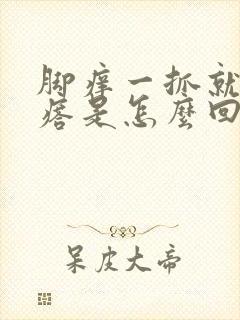 脚痒一抓就
痞是怎麼回
呆皮大帝